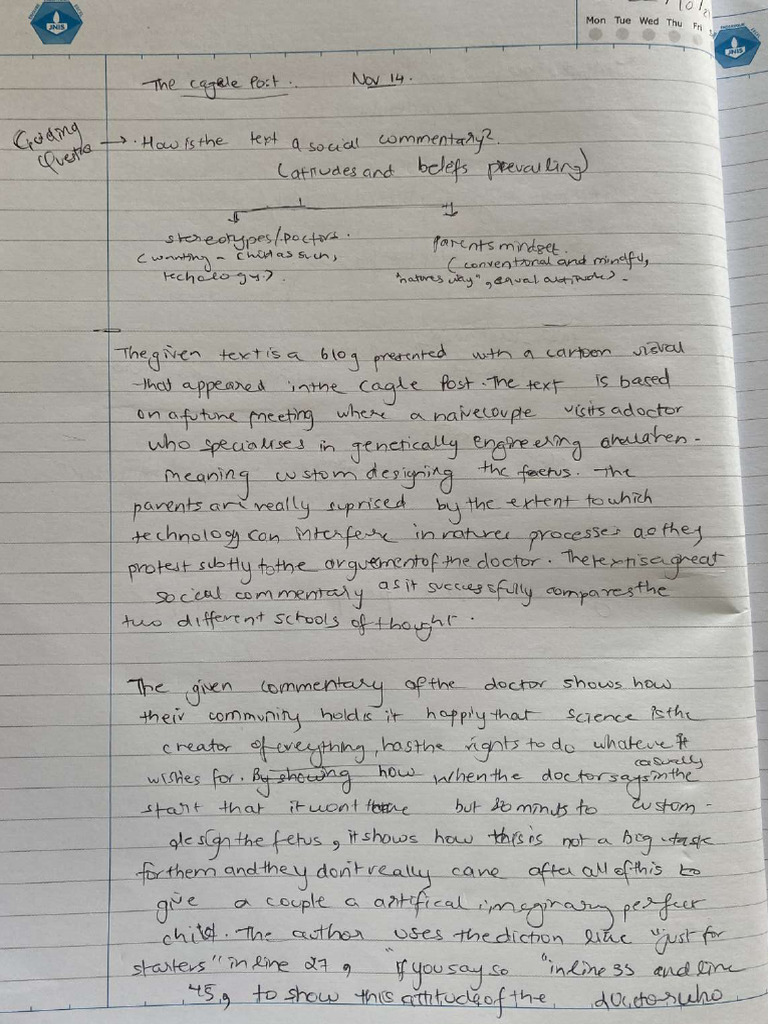 JNIS
/10/2
Mon Tue Wed Thu Fri S
The Cagle Post. Nov 14.
Guiding
Question → . How is the text a social commentary?
(attitudes and beliefs prevailing)
stereotypes/Doctors. Parents mindset.
(wanting - child as such, (conventional and mindful,
techology.) "natures way", equal attitude).
The given text is a blog presented with a cartoon visual
that appeared in the Cagle Post. The text is based
on a future meeting where a naive couple visits a doctor
who specialises in genetically engineering children -
meaning custom designing the faetus. The
parents are really suprised by the extent to which
technology can interfere in natures processes as they
protest subtly to the arguement of the doctor. The text is a great
social commentary as it successfully compares the
two different schools of thought.
The given commentary of the doctor shows how
their community holds it happily that science is the
creator of everything, has the rights to do whatever it
wishes for. By showing how when the doctor says casually in the
start that it wont take but 20 minuts to custom-
design the fetus, it shows how this is not a big task
for them and they don't really care after all of this to
give a couple a artifical imaginary perfect
child. The author uses the diction like "just for
starters" in line 27, "If you say so" in line 33 and line
45, to show this attitude of the doctors who